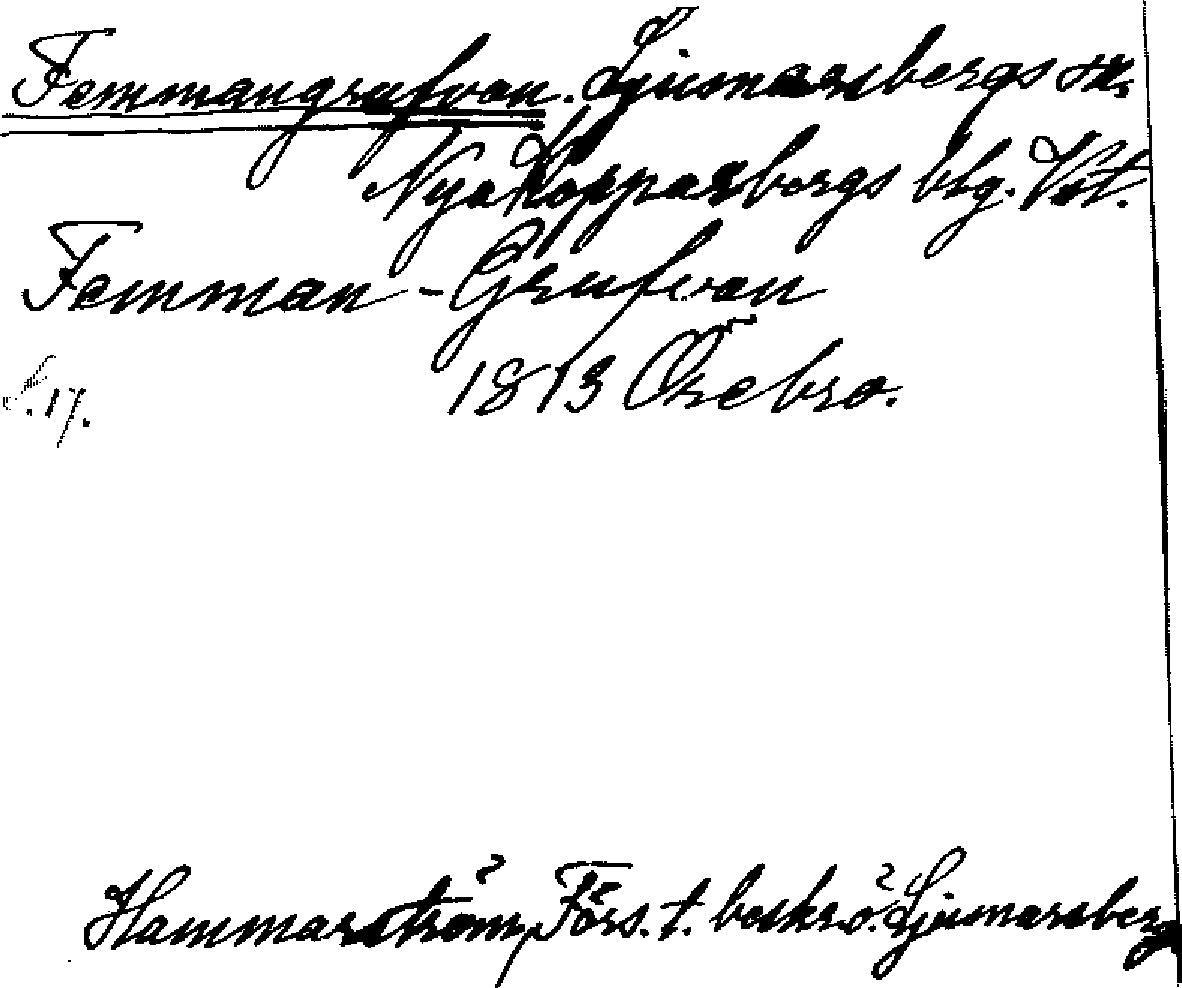 Femmangrufvan. Ljusnarsbergs sn.
Nya Kopparbergs blg. Vstm.
Femman-Grufvan
s. 17. 1813 Örebro.
Hammarström, Förs. t. beskr. ö. Ljusnarsberg